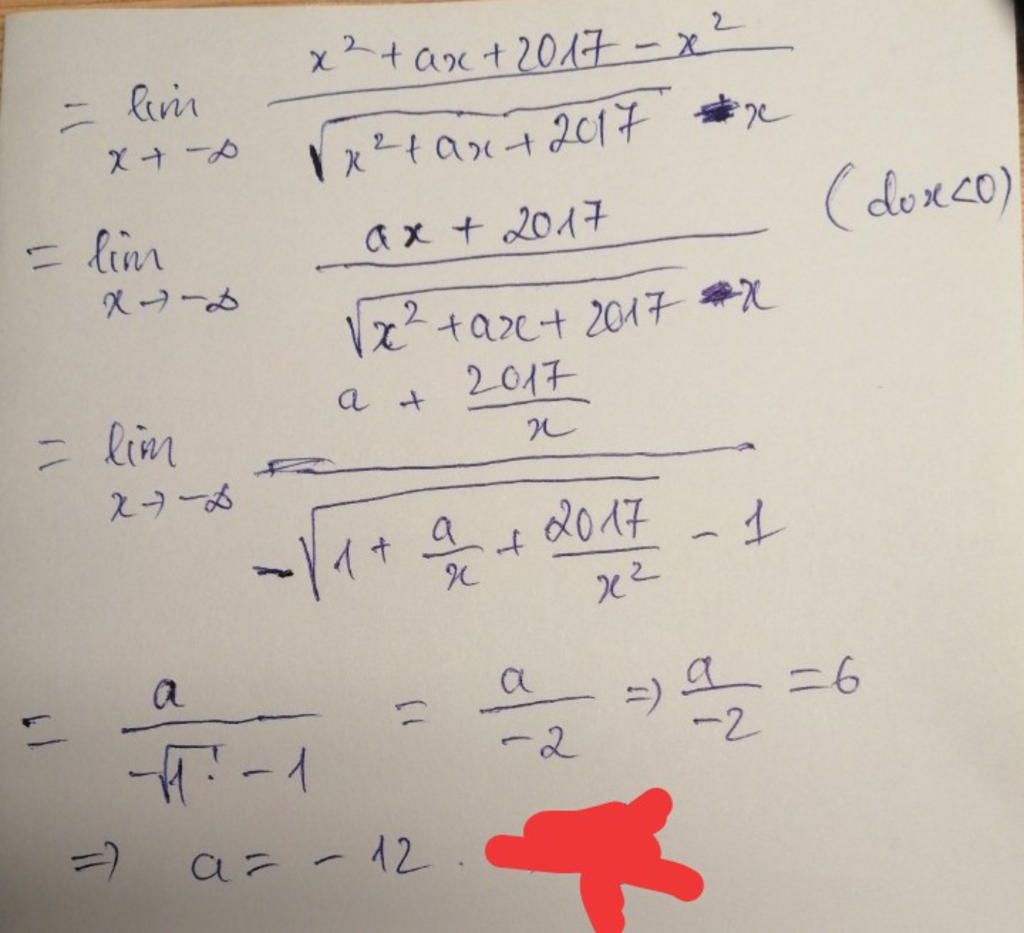 = lim x→-∞ (x² + ax + 2017 - x²) / (√(x² + ax + 2017) - x)
= lim x→-∞ (ax + 2017) / (√(x² + ax + 2017) - x) (do x<0)
= lim x→-∞ (a + 2017/x) / (-√(1 + a/x + 2017/x²) - 1)
= a / (-√1 - 1) = a/-2 => a/-2 = 6
=> a = -12.